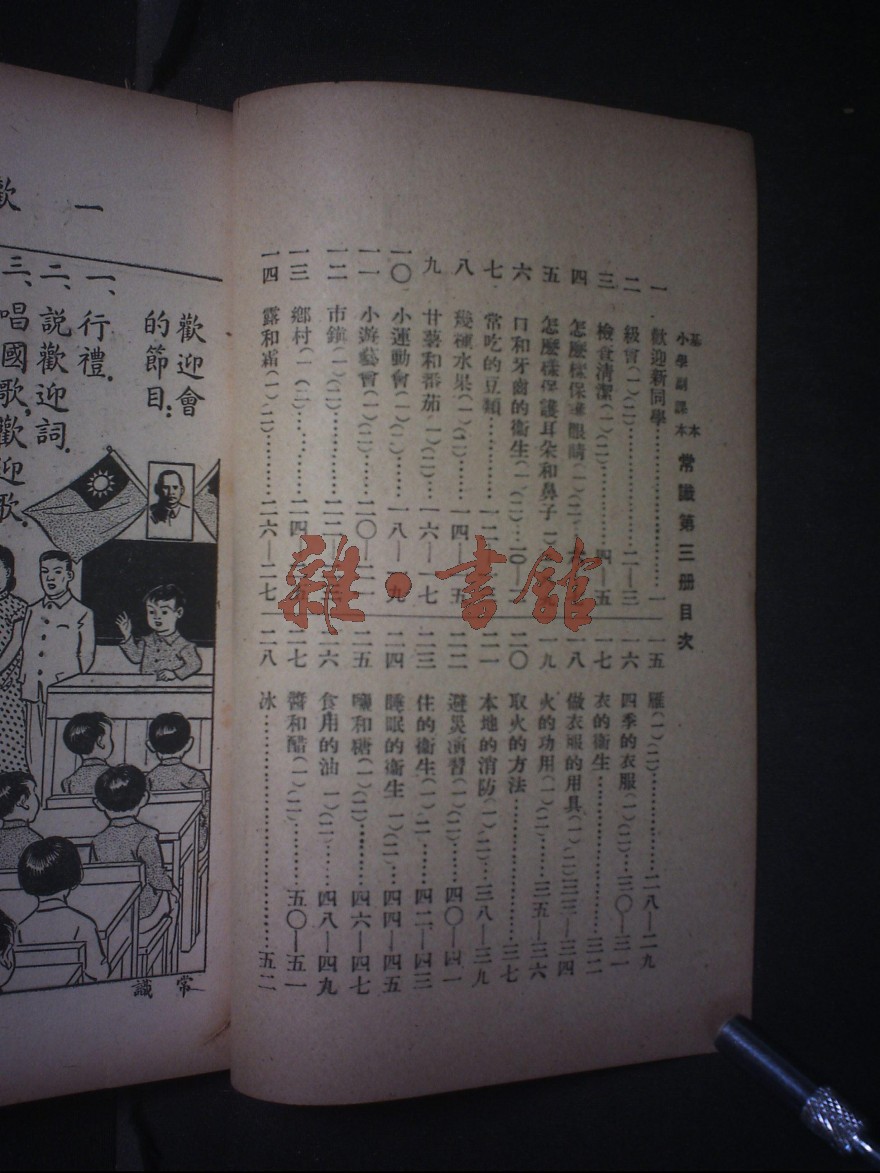 基本
小學副課本
常識第三册目次
一 歡迎新同學……………一
二 級會(一)(二)……………二—三
三 檢查清潔(一)(二)……………四—五
四 怎麼樣保護眼睛(一)(二)
五 怎麼樣保護耳朵和鼻子
六 口和牙齒的衞生(一)(二)…一〇—
七 常吃的豆類……………一二
八 幾種水果(一)(二)……一四—一五
九 甘薯和番茄(一)(二)…一六—一七
一〇 小運動會(一)(二)……一八—一九
一一 小遊藝會(一)(二)……二〇—二一
一二 市鎮(一)(二)……………二二—
一三 鄉村(一)(二)……………二四—
一四 露和霜(一)(二)……………二六—二七
一五 雁(一)(二)……………二八—二九
一六 四季的衣服(一)(二)…三〇—三一
一七 衣的衞生……………三二
一八 做衣服的用具(一)(二)三三—三四
一九 火的功用(一)(二)……三五—三六
二〇 取火的方法……………三七
二一 本地的消防(一)(二)…三八—三九
二二 避災演習(一)(二)……四〇—四一
二三 住的衞生(一)(二)……四二—四三
二四 睡眠的衞生(一)(二)…四四—四五
二五 鹽和糖(一)(二)………四六—四七
二六 食用的油(一)(二)……四八—四九
二七 醬和醋(一)(二)………五〇—五一
二八 冰……………五二
一 歡
歡迎會
的節目：
一、行禮．
二、説歡迎詞．
三、唱國歌，歡迎歌．
常識
雜·書館